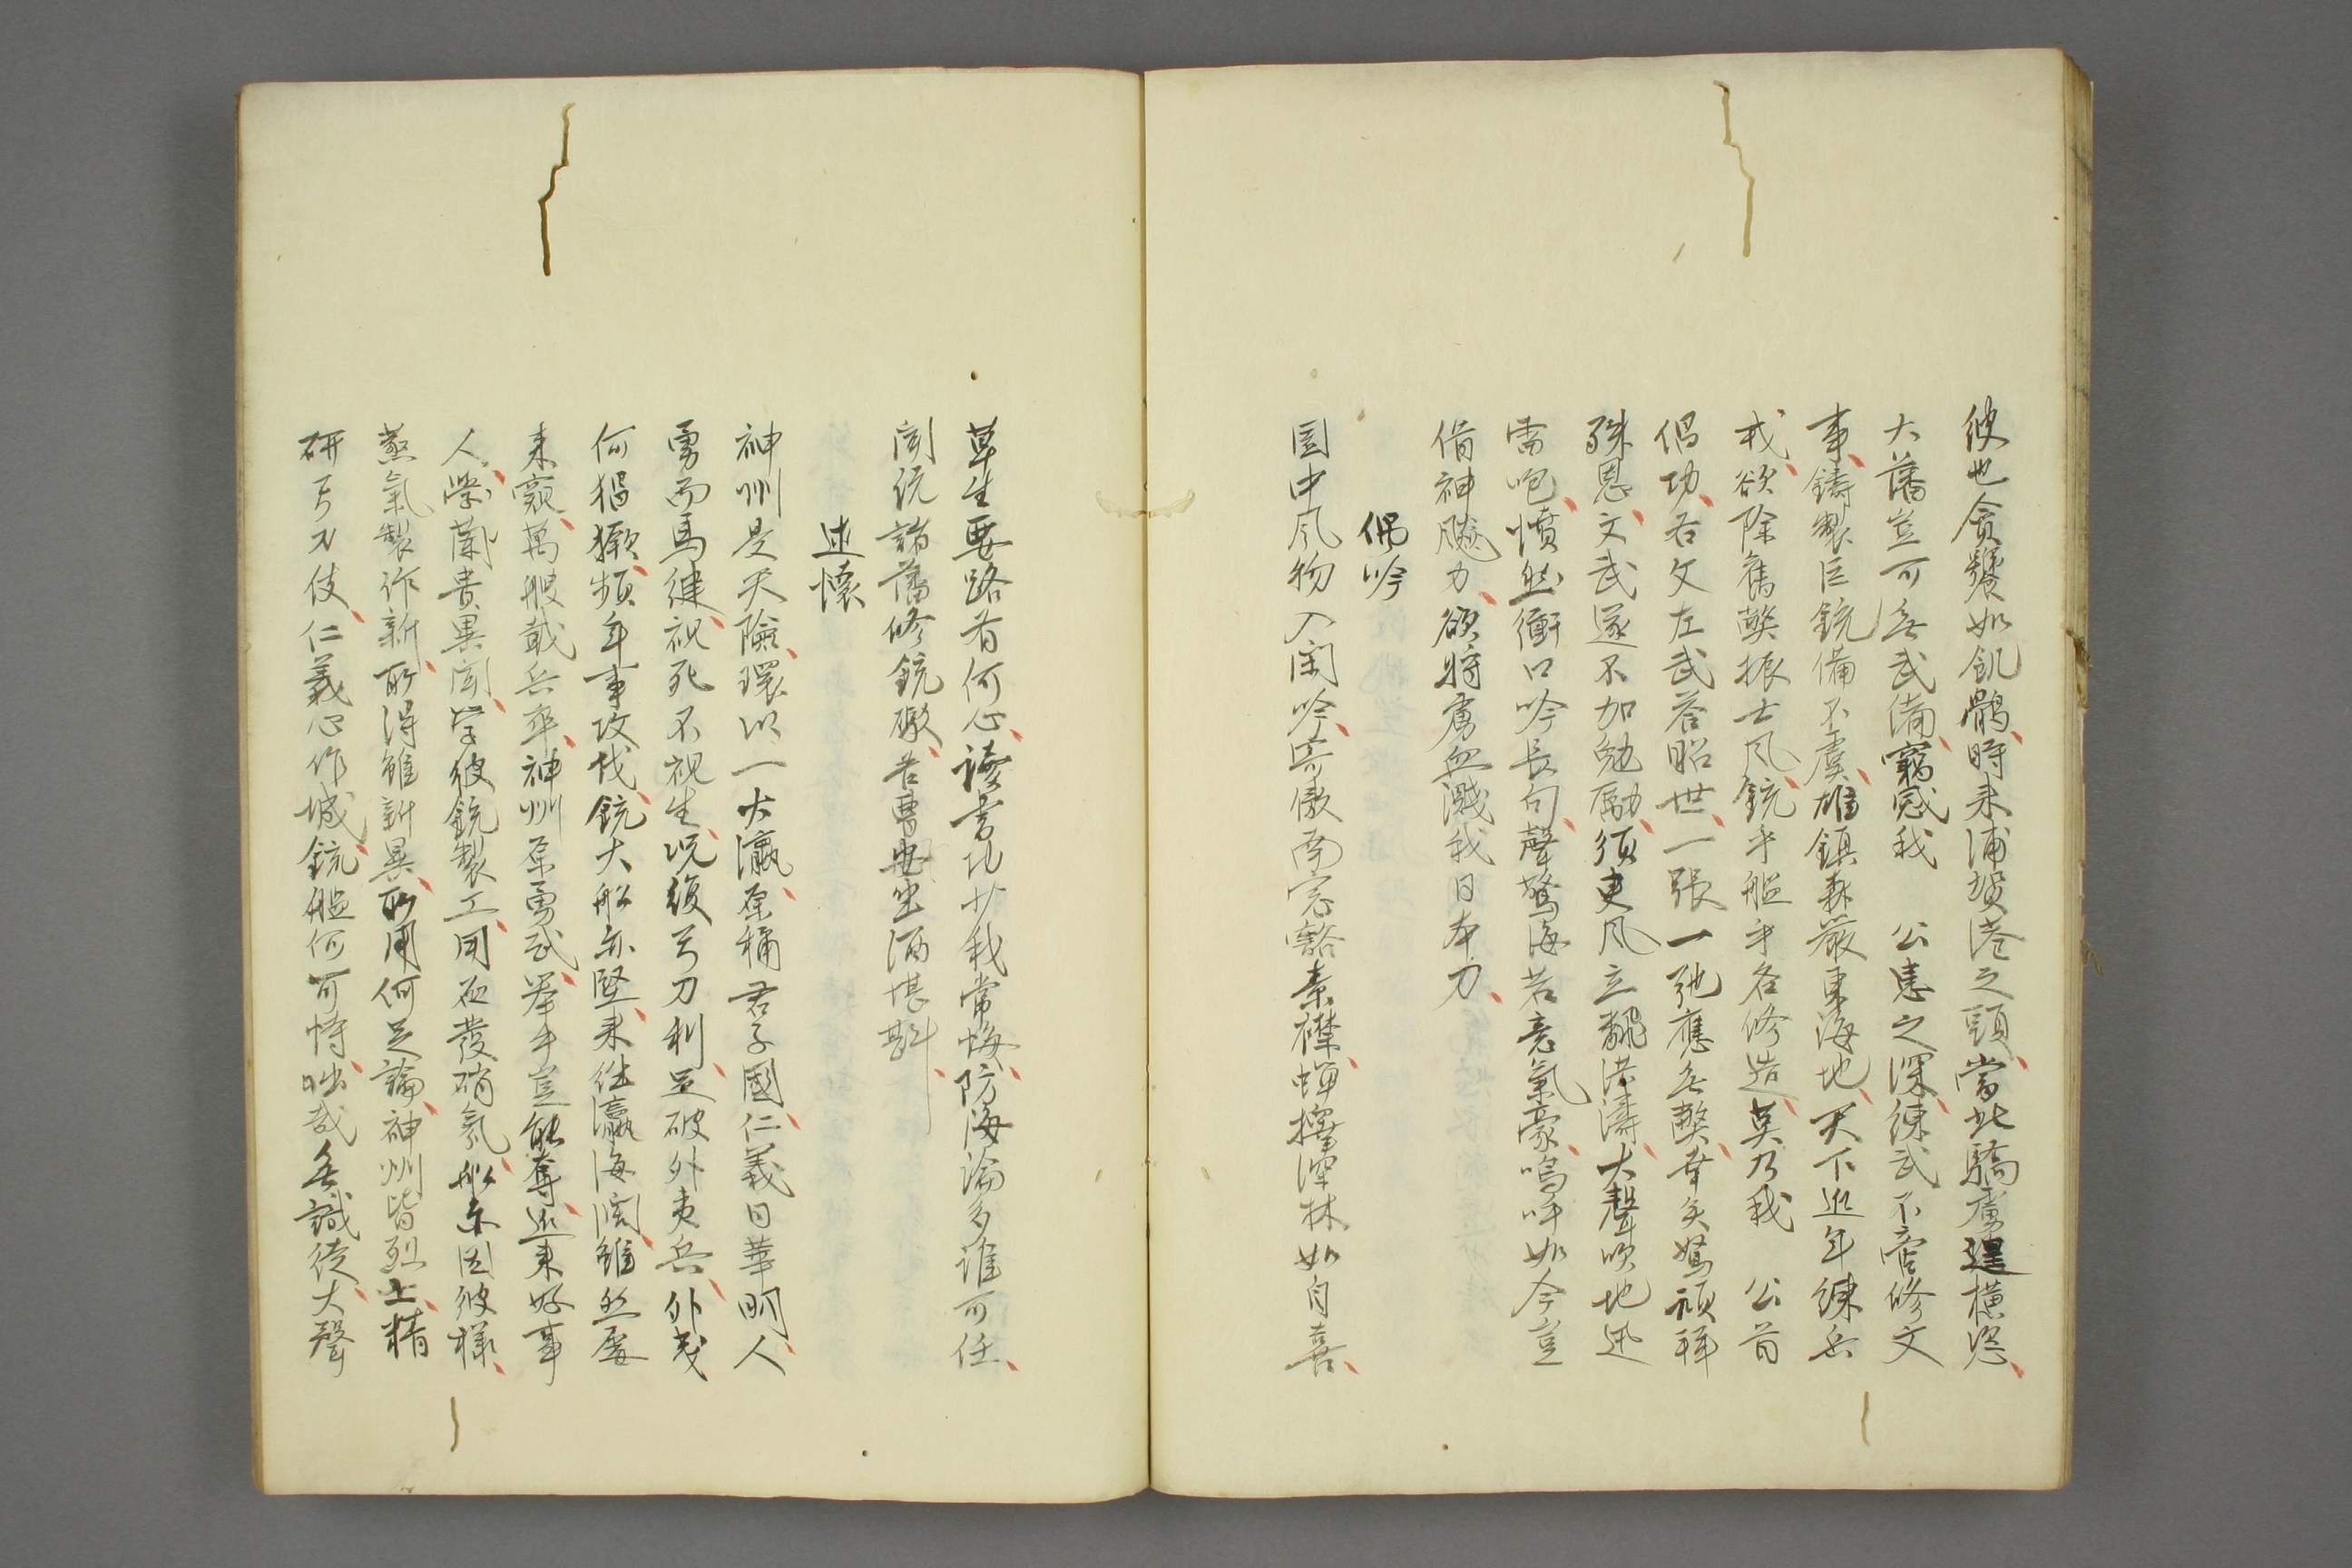 彼也貪饕如飢鶻時来浦賀港之頭当此驕虜逞横恣
大藩豈可無武備竊感我　公恵之深練武不啻修文
事鋳製巨銃備不虞雄鎮森厳東海地天下近年練兵
戎欲除旧弊振士風銃手艦手各修造莫乃我　公首
倡功右文左武答昭世一張一弛応無弊幸矣駑頑拝
殊恩文武遂不加勉励須臾風立翻洪濤大声吹地迅
雷咆憤然衝口吟長句声驚海若意気豪嗚呼如今豈
借神飈力欲将虜血濺我日本刀
偶吟
園中風物入閑吟寄傲南窓豁素襟蝉擇深林如自喜
草生要路有何心読書比少我常悔防海論多誰可任
聞説諸藩修銃礮吾曹安坐酒堪斟
述懐
神州是天険環以一大瀛原称君子国仁義日華明人
勇而馬健視死不視生況復弓刀利足破外夷兵外夷
何猖獗頻年事攻伐銃大船亦堅来往瀛海闊雖然屡
来窺萬艘載兵卒神州原勇武挙手豈能奪近来好事
人学蘭貴異聞学彼銃製工用砲発硝気船亦因彼様
蒸気製作新所得雖新異所用何足論神州皆烈士精
研弓刀伎仁義心作城銃艦何可恃咄哉無識徒大声